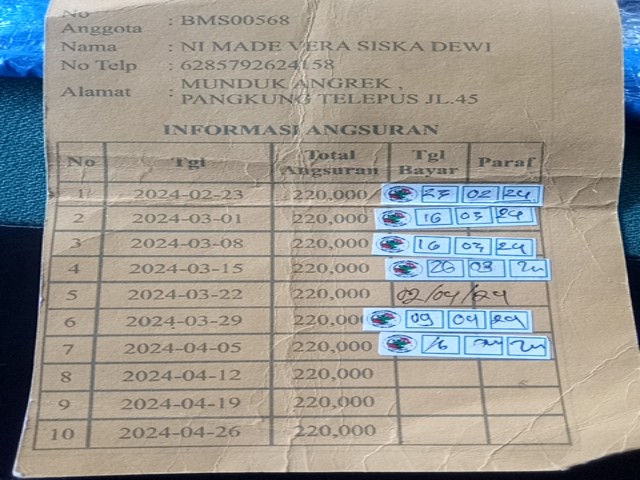 No
Anggota : BMS00568
Nama : NI MADE VERA SISKA DEWI
No Telp : 6285792624158
Alamat : MUNDUK ANGREK ,
PANGKUNG TELEPUS JL.45
INFORMASI ANGSURAN
No Tgl Total Angsuran Tgl Bayar Paraf
1 2024-02-23 220,000 27 02 24
2 2024-03-01 220,000 16 03 24
3 2024-03-08 220,000 16 03 24
4 2024-03-15 220,000 26 03
5 2024-03-22 220,000 02/04/24
6 2024-03-29 220,000 09 04 24
7 2024-04-05 220,000 16
8 2024-04-12 220,000
9 2024-04-19 220,000
10 2024-04-26 220,000